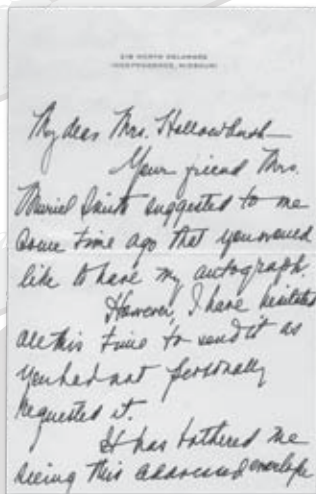 219 NORTH DELAWARE
INDEPENDENCE, MISSOURI
My dear Mrs. Hollowbush—
Your friend Mrs.
Muriel suggested to me
some time ago that you would
like to have my autograph.
However, I have hesitated
all this time to send it as
you had not personally
requested it.
It has bothered me
seeing this addressed envelope